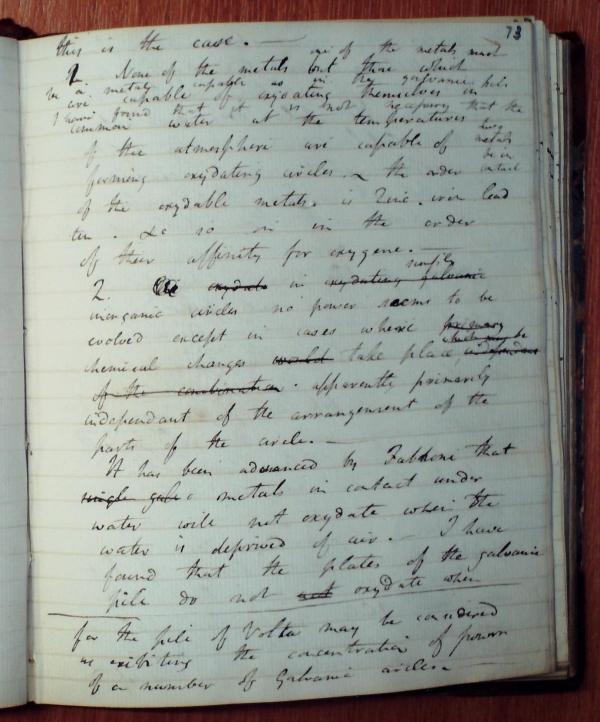 73
this is the case. —
one of the metals must
1 None of the metals but those which
in a metal capable as in the galvanic pile
are capable of oxydating themselves in
I have found that it is not necessary that the
common water at the temperatures two
of the atmosphere are capable of metals
be in
forming oxydating circles. – the order contact
of the oxydable metals. is Zinc. iron lead
tin. &c so on in the order
of their affinity for oxygene. —
simply
2. oxydate in oxydating galvanic
inorganic circles no power seems to be
evolved except in cases where primary
which may be
chemical changes would take place, independent
of the combination. apparently primarily
independant of the arrangement of the
parts of the circle. —
It has been advanced by Fabboni that
single galv metals in contact under
water will not oxydate when the
water is deprived of air. — I have
found that the plates of the galvanic
pile do not oxydate when
for the pile of Volta may be considered
as exibiting the concentration of powers
of a number of Galvanic circles. —